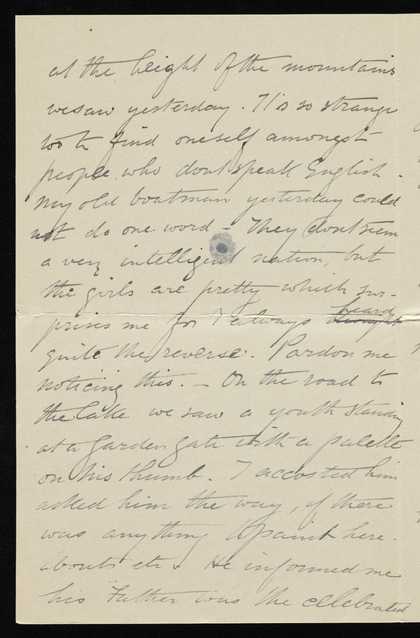 at the height of the mountains
we saw yesterday. It is so strange
too to find oneself amongst
people who dont speak English.
My old boatman yesterday could
not do one word - They dont seem
a very intelligent nation, but
the girls are pretty which sur-
prises me for I always heard
quite the reverse. Pardon me
noticing this. - On the road to
the lake we saw a youth standing
at a garden gate with a palette
on his thumb. I accosted him
asked him the way, if there
was anything to paint here-
abouts etc. He informed me
his Father was the celebrated